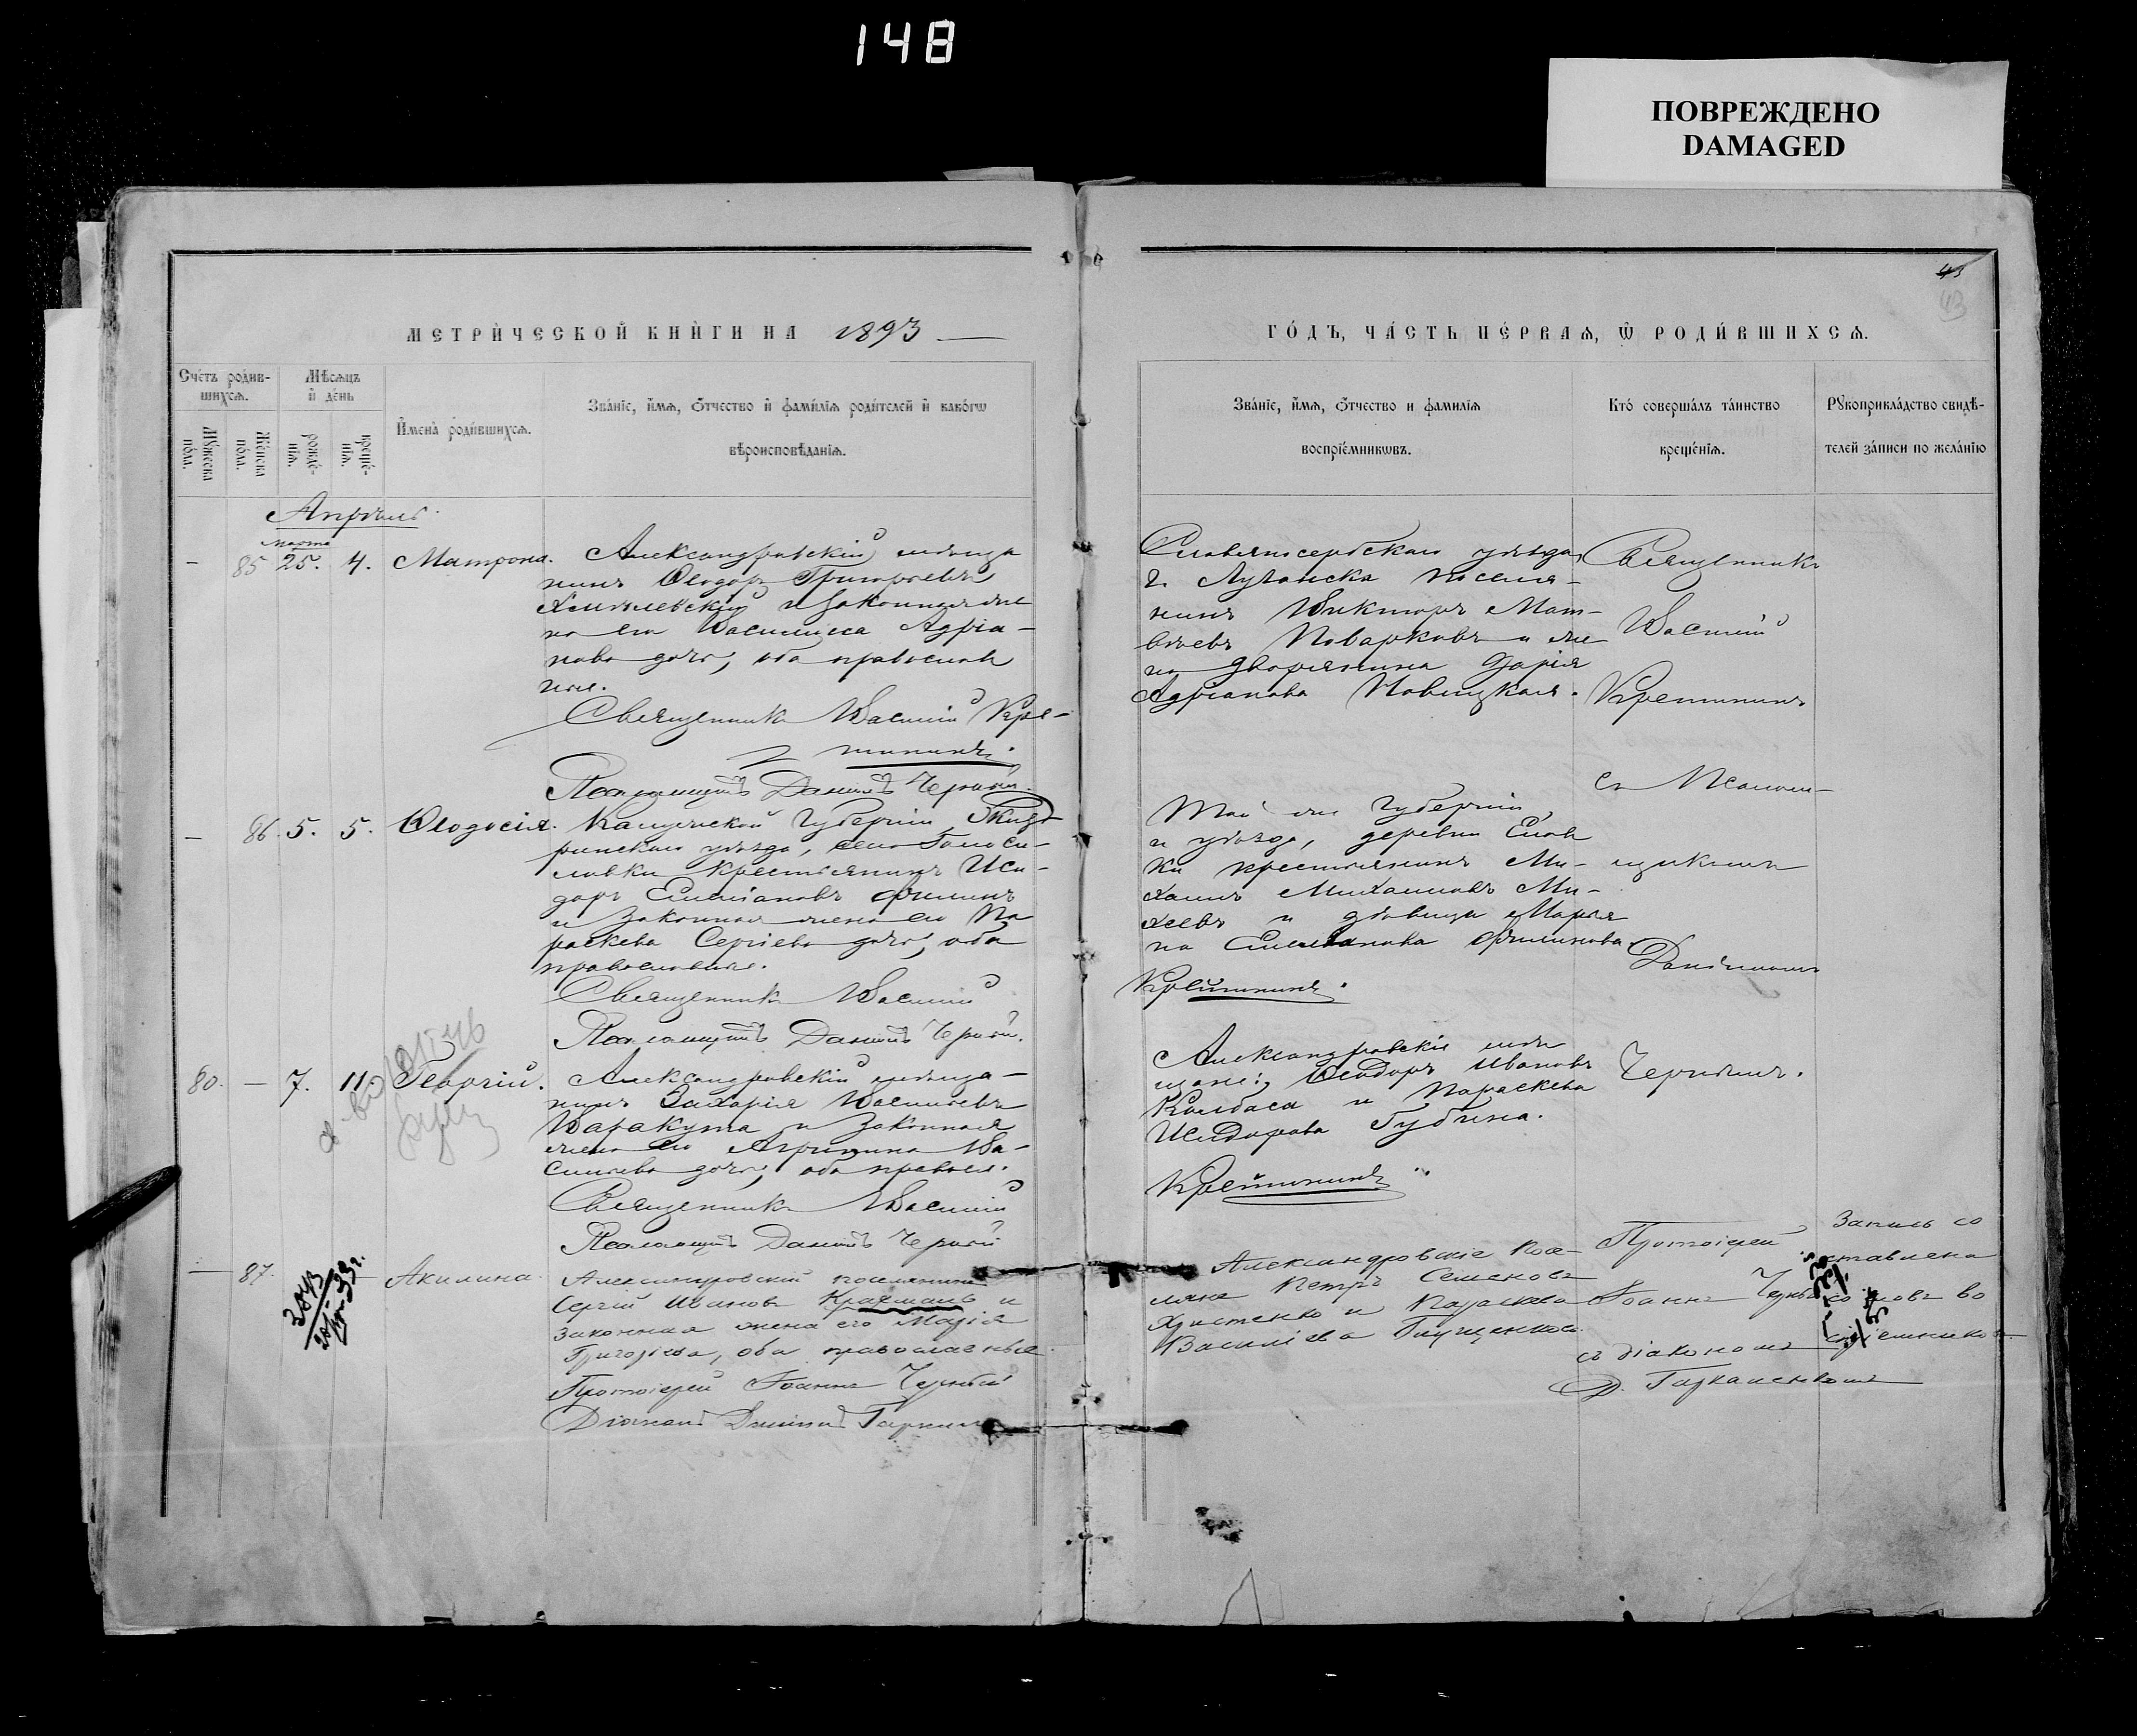 148
ПОВРЕЖДЕНО
DAMAGED
43
МЕТРИ́ЧЕСКОЙ КНИ́ГИ НА 1893
ГО́ДЪ, ЧА́СТЬ ПЕ́РВАѦ, Ѿ РОДИ́ВШИХСѦ.
Сче́тъ роди́в-
шихсѧ.
Му́жеска по́ла.
Же́нска по́ла.
Мѣ́сѧцъ
и҆ де́нь
рожде́-
нїѧ.
креще́-
нїѧ.
И҆мена̀ роди́вшихсѧ.
Зва́нїе, и҆́мѧ, ѻ҆́тчество и҆ фами́лїѧ роди́телей и҆ како́гѡ
вѣроисповѣ́данїѧ.
Зва́нїе, и҆́мѧ, ѻ҆́тчество и фами́лїѧ
воспрїе́мникѡвъ.
Кто́ соверша́лъ та́инство
креще́нїѧ.
Рꙋкоприкла́дство свидѣ́-
телей за́писи по жела́нїю
Апрѣль
марта
- 85 25. 4. Матрона.
Александровскій мѣща
нинъ Ѳеодоръ Григорьевъ
Хмѣлевскій и законная же
на его Василисса Адріа-
нова дочь, оба православ
ные.
Священникъ Василій Кре-
тининъ.
Псаломщикъ Даніилъ Черный.
Славяносербскаго уѣзда,
г. Луганска поселя-
нинъ Викторъ Мат-
вѣевъ Поварковъ и же
на дворянина Дарія
Адріанова Новицкая.
Священникъ
Василій
Кретининъ
съ Псалом-
щикомъ
Даніиломъ
Чернымъ.
- 86. 5. 5. Ѳеодосія.
Калужской губерніи, Жизд
ринскаго уѣзда, села
крестьянинъ Иси-
доръ Емеліановъ Филинъ
и законная жена его Па
раскева Сергіева дочь, оба
православные.
Священникъ Василій
Псаломщикъ Даніилъ Черный.
Той же губерніи
и уѣзда, деревни
ки крестьянинъ Ми-
хаилъ Михаиловъ Ми-
хеевъ и дѣвица Марья
на Емельянова Филинова.
Кретининъ.
80. - 7. 11. Георгій.
Александровскій мѣща-
нинъ Захарія Васильевъ
Варакута и законная
жена его Агрипина Ва-
сильева дочь, оба правосл.
Священникъ Василій
Псаломщикъ Даніилъ Черный
Александровскіе мѣ
щане: Ѳеодоръ Ивановъ
Колбаса и Параскева
Исидорова Губина.
Кретининъ.
— 87. — Акилина.
Александровскій поселянинъ
Сергій Ивановъ и
законная жена его Марія
Григоріева, оба православные.
Протоіерей Іоаннъ Черный
Діаконъ Даніилъ
Александровскіе посе-
ляне Петръ Семеновъ
Христенко и Параскева
Василіева Глущенкова.
Протоіерей
Іоаннъ
съ діакономъ
Д.
Запись со
ставлена
со словъ во
спріемниковъ